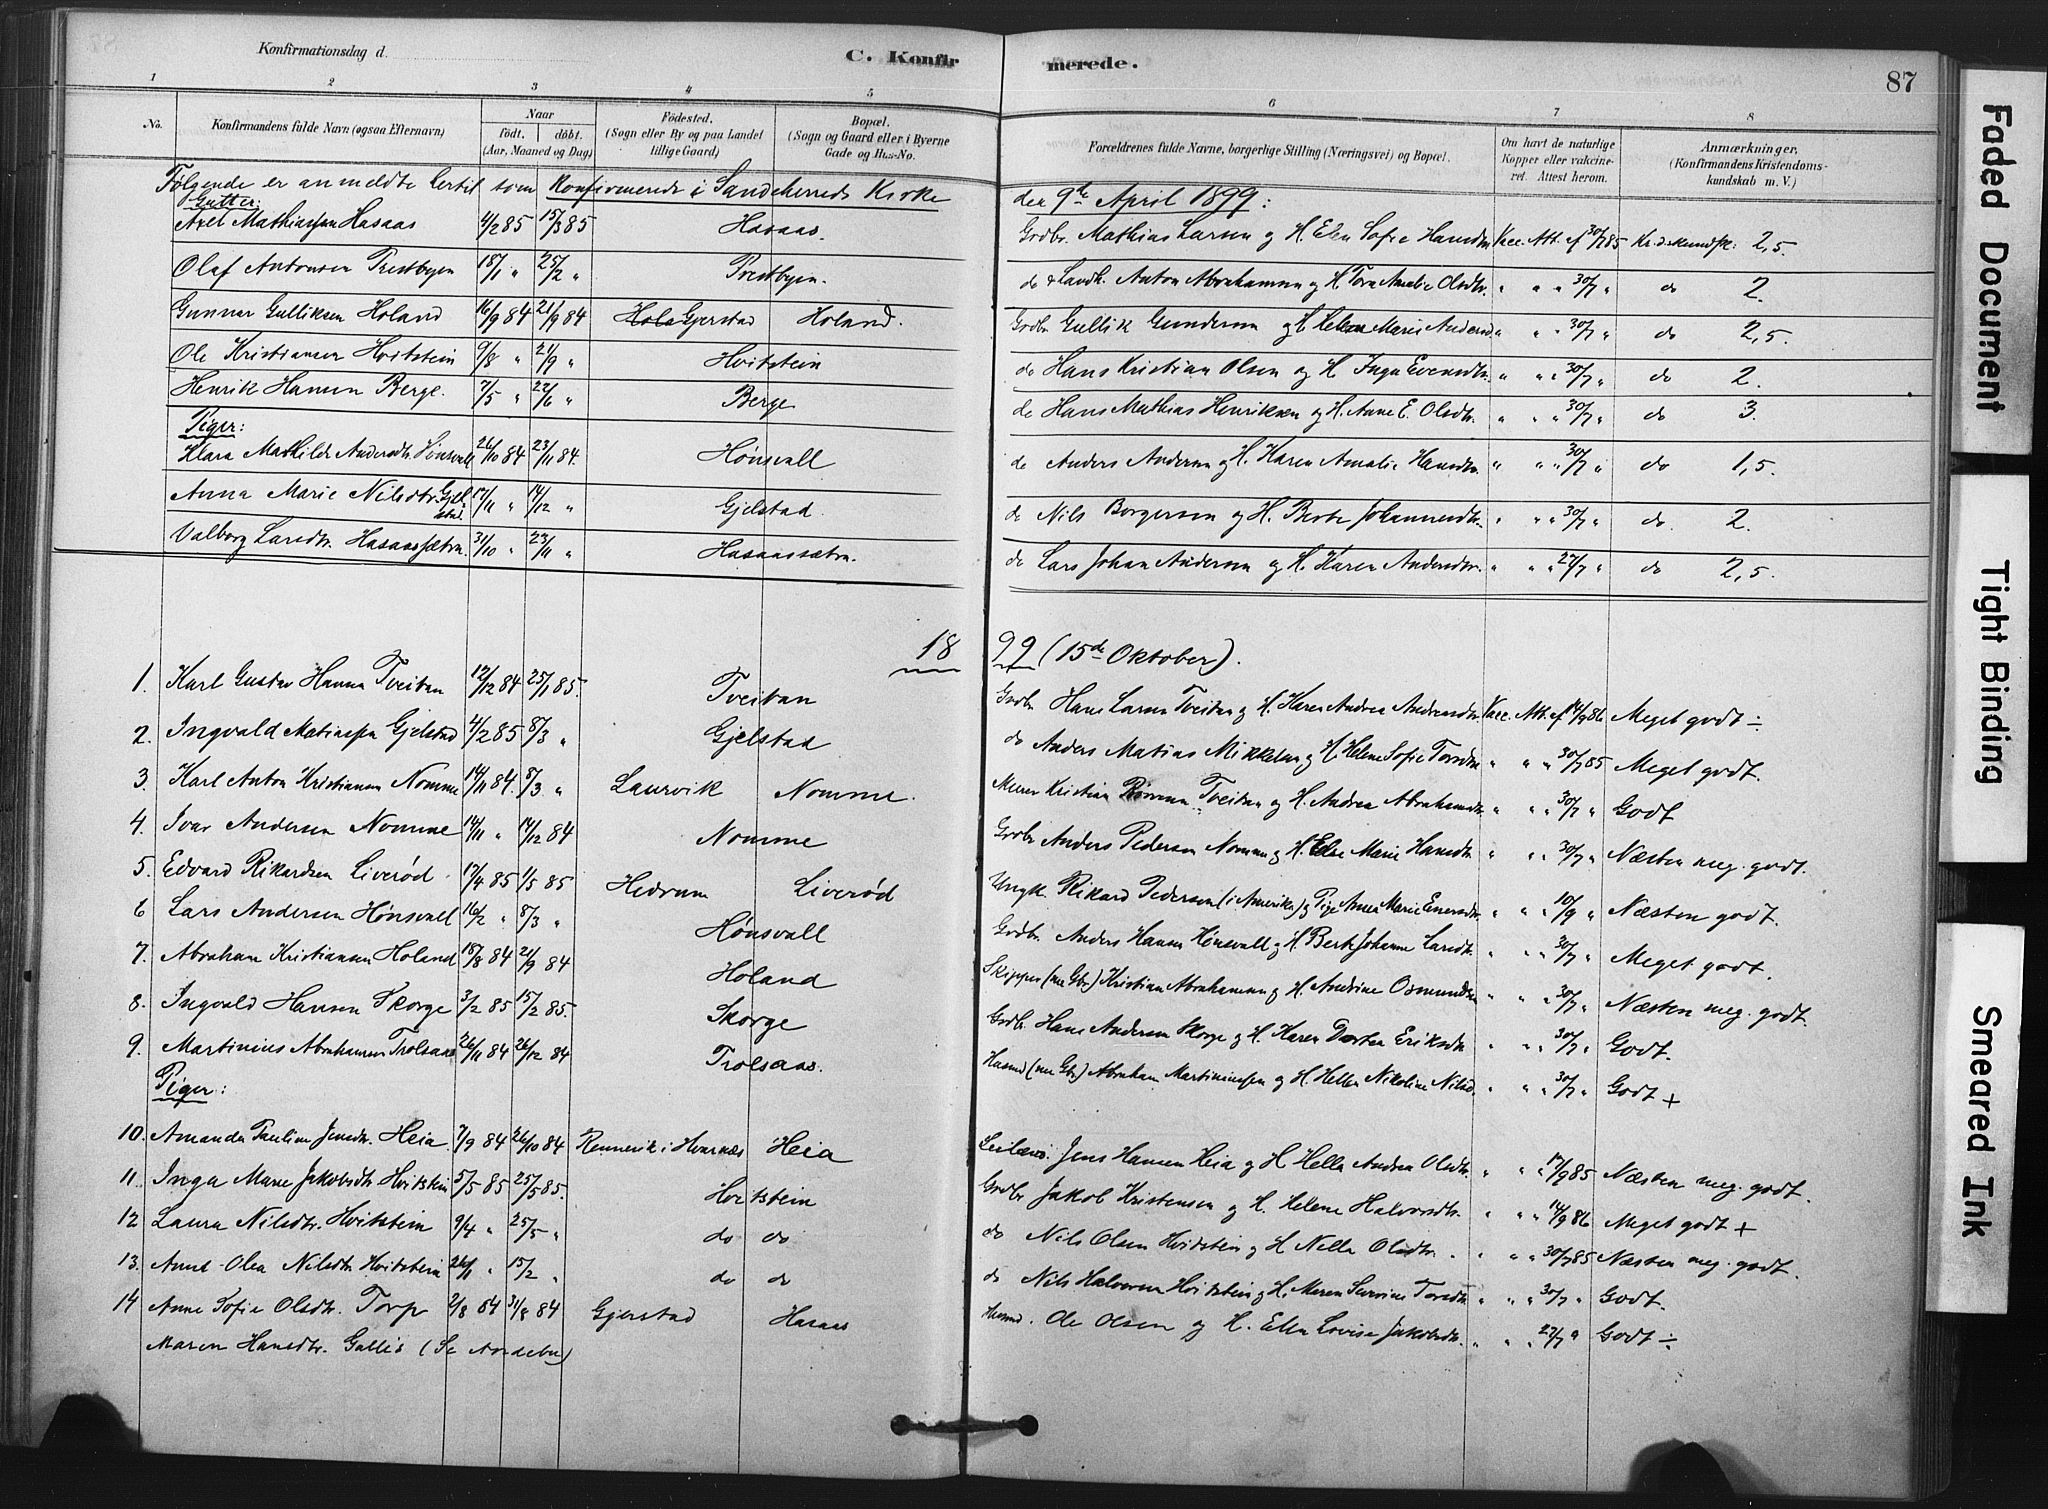 Konfirmationsdag d.
C. Konfirmerede.
87
1 2 3 4 5 6 7 8
No. Konfirmandens fulde Navn (ogsaa Efternavn) Naar født. døbt. (Aar, Maaned og Dag) Fødested. (Sogn eller By og paa Landet tillige Gaard) Bopæl. (Sogn og Gaard eller i Byerne Gade og Hus-No. Forældrenes fulde Navne, borgerlige Stilling (Næringsvei) og Bopæl. Om havt de naturlige Kopper eller vakcineret. Attest herom. Anmærkninger, (Konfirmandens Kristendomskundskab m. V.)
Følgende er anmeldte hertil som konfirmerede i Sandeherreds Kirke den 9de April 1899:
Gutter:
Axel Mathiassen Hasaas 4/2 85 15/3 85 Hasaas. Grdbr. Mathias Larsen og H. Elen Sofie Hansdtr. Vacc. Att. af 30/7 85 Kr.d.skundsk: 2,5.
Olaf Antonsen Prestbyen 18/1 " 25/2 " Prestbyen. do & Landh. Anton Abrahamsen og H. Tora Amalie Olsdtr. " " " 30/7 " do 2.
Gunnar Gulliksen Holand 16/9 84 21/9 84 Gjerstad Holand. Grdbr. Gullik Gundersen og H. Helene Marie Andersd " " " 30/7 " do 2,5.
Ole Kristiansen Hvitstein 9/8 " 21/9 " Hvitstein do Hans Kristian Olsen og H. Inga Evensdtr. " " " 30/7 " do 2.
Henrik Hansen Berge. 7/5 " 22/6 " Berge do Hans Mathias Henriksen og H. Anne E. Olsdtr. " " " 30/7 " do 3.
Piger:
Klara Mathilde Andersdtr. Hönsvall 26/10 84 23/11 84. Hønsvall do Anders Andersen og H. Karen Amalie Hansdtr. " " " 30/7 " do 1,5.
Anna Marie Nilsdtr. Gjelstad. 17/11 " 14/12 " Gjelstad. do Nils Borgersen og H. Berte Johannesdtr. " " " 30/7 " do. 2.
Valborg Larsdtr. Hasaassætra. 31/10 " 23/11 " Hasaassætra. do Lars Johan Andersen og H. Karen Andersdtr. " " " 27/7 " do 2,5.
1899 (15de Oktober).
1. Karl Gustav Hansen Tveitan 12/12 84 25/1 85. Tveitan Grdbr. Hans Larsen Tveitan og H. Karen Andrea Andersdtr. Vacc. Att. af 14/9 86 Meget godt ÷
2. Ingvald Matiassen Gjelstad 4/2 85 8/3 " Gjelstad do Anders Matias Mikkelsen og H. Helene Sofie Torsdtr. " " " 30/7 85 Meget godt.
3. Karl Anton Kristiansen Nomme 14/11 84. 8/3 " Laurvik Nomme. Murer Kristian Tveitan og H. Andrea Abrahamsdtr. " " " 30/7 " Godt
4. Ivar Andersen Nomme 14/11 " 14/12 84 Nomme Grdbr. Anders Pedersen Nomme og H. Else Marie Hansdtr. " " " 30/7 " Næsten meg. godt.
5. Edvard Rikardsen Liverød 17/4 85 1/5 85 Hedrum Liverød Ungk. Rikard Pedersen (i Amerika) og Pige Anna Marie Enersdtr. " " " 10/9 " Næsten godt.
6 Lars Andersen Hönsvall 16/2 " 8/3 " Hønsvall Grdbr. Anders Hansen Hönsvall og H. Berte Johanne Larsdtr. " " " 30/7 " Meget godt.
7. Abraham Kristiansen Holand 18/8 84 21/9 84 Holand Skipper (nu Gbr.) Kristian Abrahamsen og H. Andrine Osmundsdtr. " " " 30/7 " Næsten meg. godt.
8. Ingvald Hansen Skorge 3/2 85 15/2 85. Skorge Grdbr. Hans Andersen Skorge og H. Karen Dorthea Eriksdtr " " " 30/7 " Godt.
9. Martinius Abrahamsen Trolsaas 26/11 84 26/12 84 Trolsaas. Husmd (nu Gbr.) Abraham Martiniussen og H. Helle Nikoline Nilsd. " " " 30/7 " Godt +
Piger:
10. Amanda Pauline Jensdtr. Heia 7/9 84 26/10 84 i Hvarnæs Heia Jens Hansen Heia og H. Helle Andrea Olsdtr. " " " 17/9 85 Næsten meg. godt.
11. Inga Marie Jakobsdtr. Hvitstein 5/5 85 25/5 85. Hvitstein Grdbr. Jakob Kristensen og H. Helene Halvorsdtr. " " " 14/9 86 Meget godt +
12 Laura Nilsdtr. Hvitstein 9/4 " 25/5 " do do do Nils Olsen Hvitstein og H. Nella Olsdtr. " " " 30/7 85 Næsten meg. godt.
13. Anne Olea Nilsdtr. Hvitstein 26/1 " 15/2 " do do do Nils Halvorsen Hvitstein og H. Maren Severine Torsdtr. " " " 30/7 " Godt.
14 Anne Sofie Olsdtr. Torp 2/8 84 31/8 84 Gjerstad Hasaas Husmd. Ole Olsen og H. Ellen Lovise Jakobsdtr. " " " 27/7 " Godt ÷
Maren Hansdtr. Gallis (Se Andebu)
Faded Document
Tight Binding
Smeared Ink